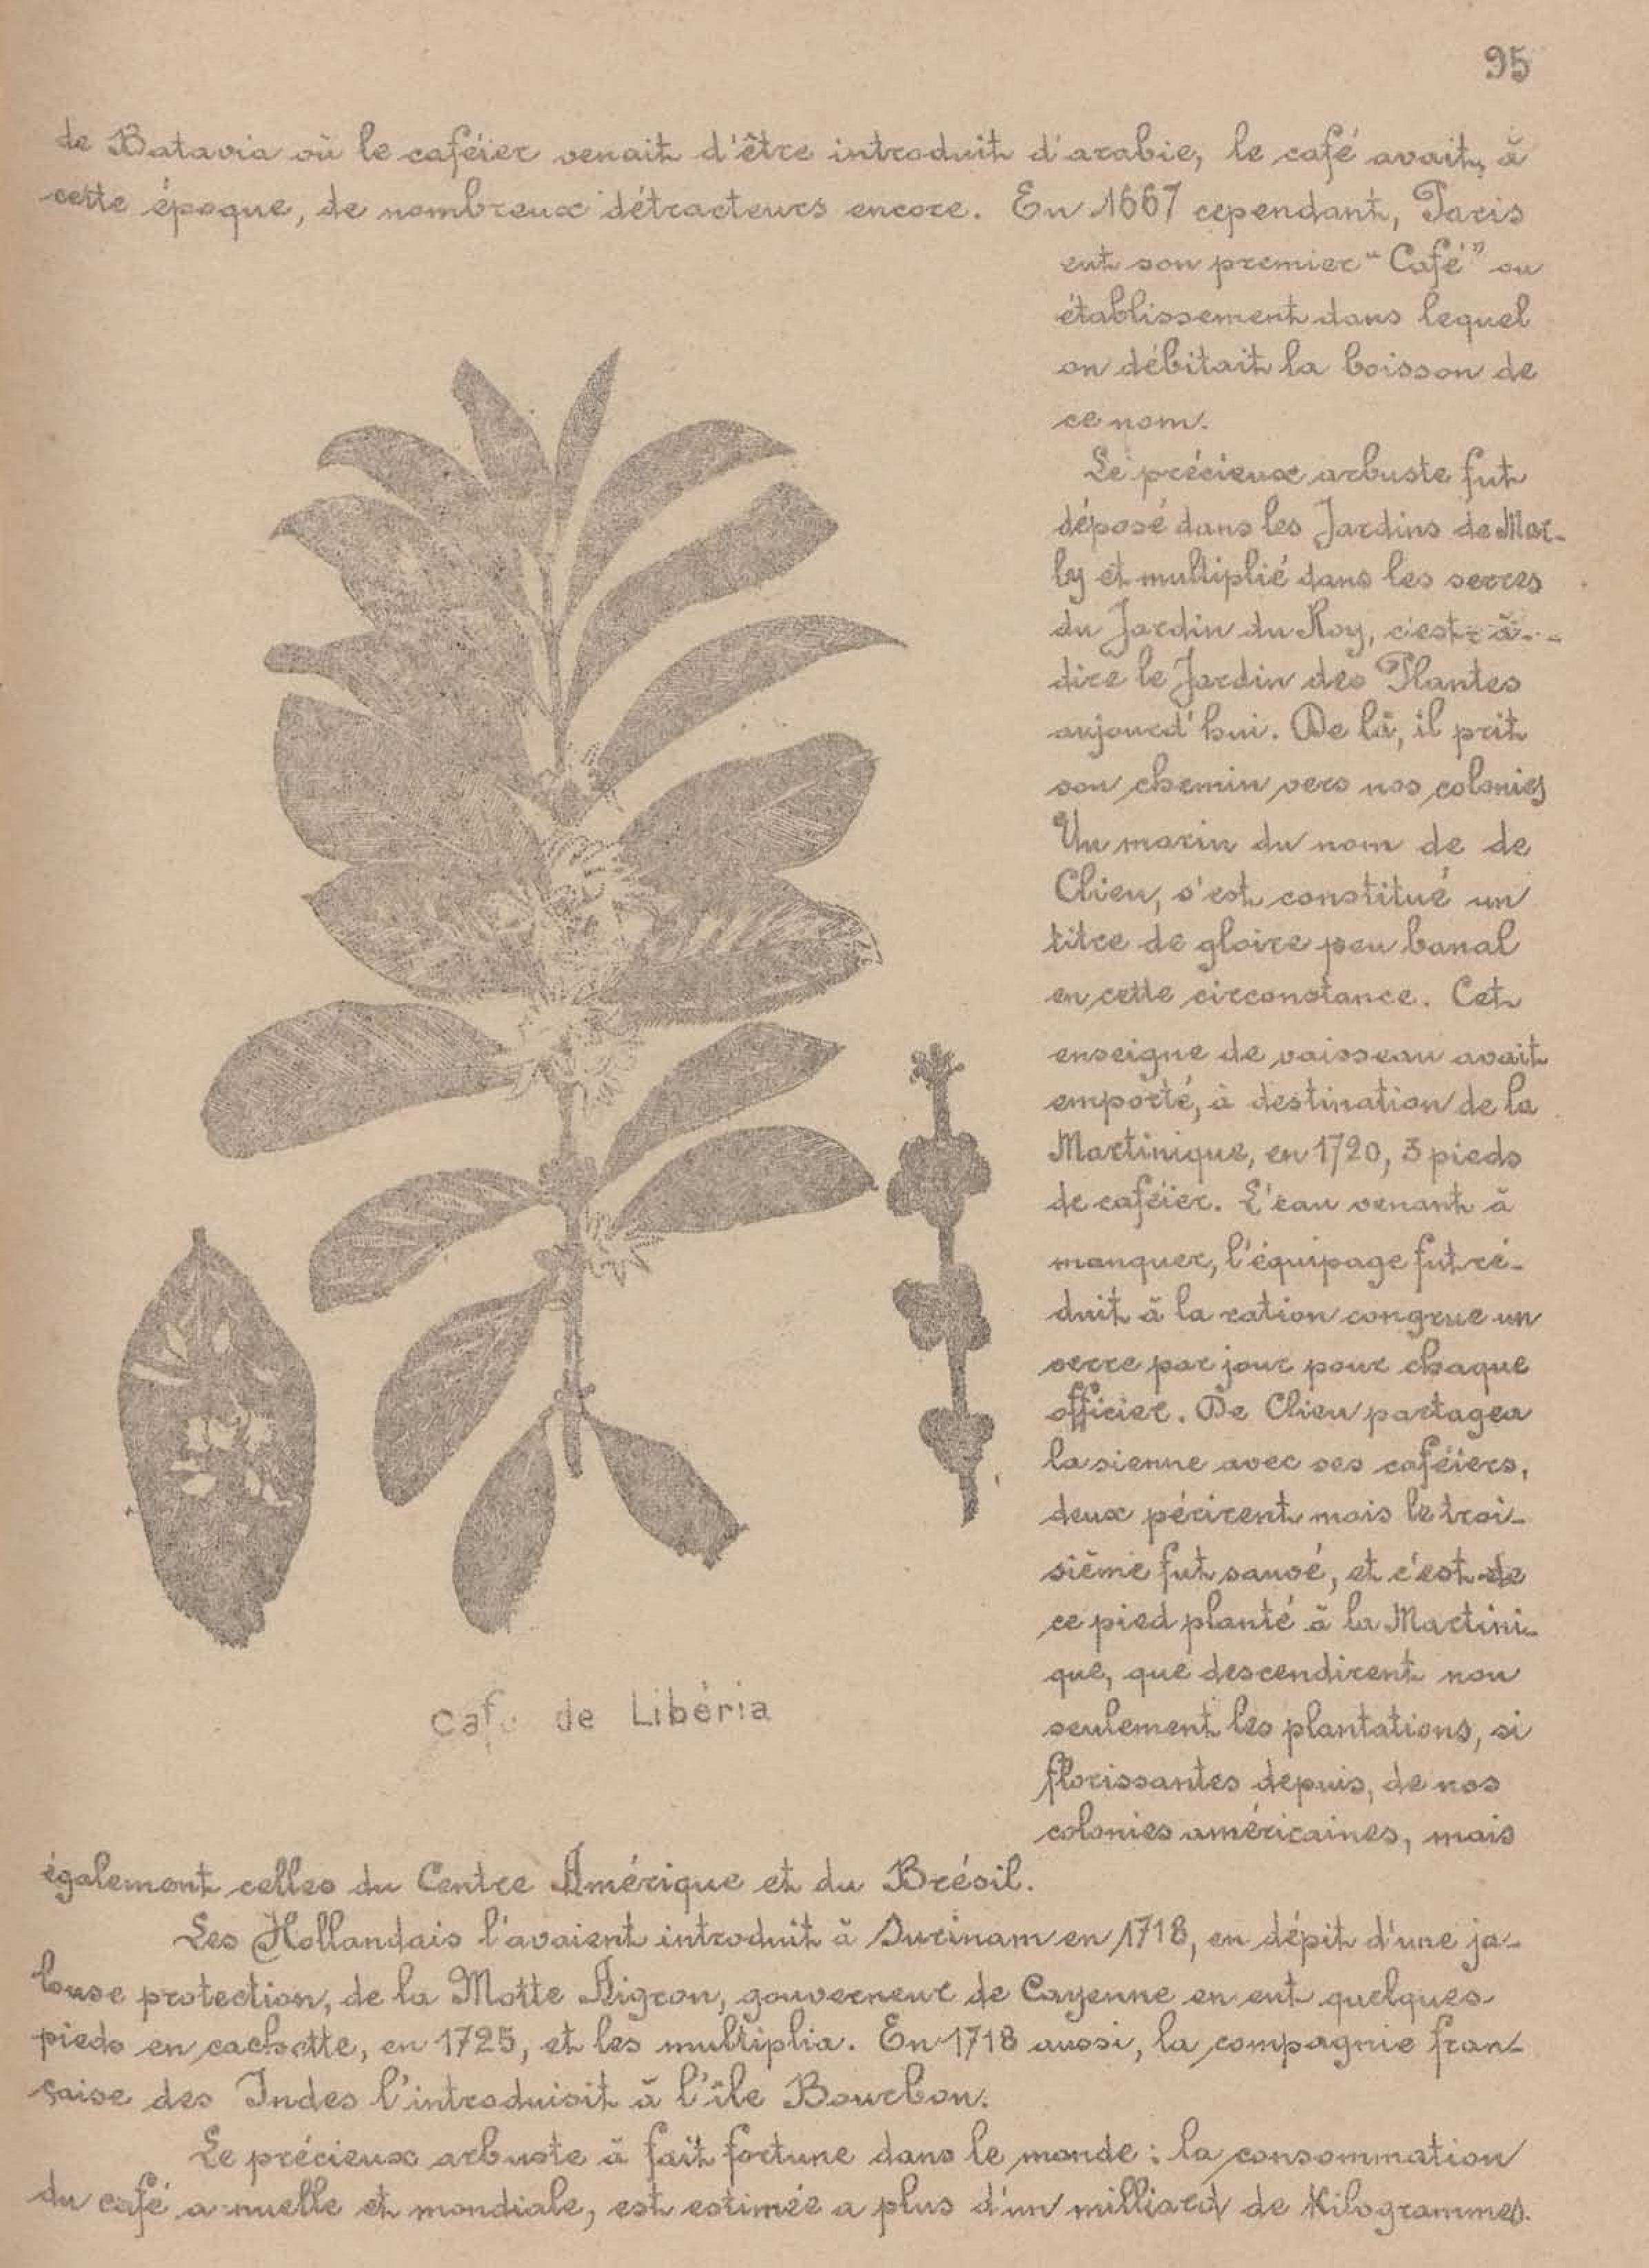 95
de Batavia où le caféier venait d'être introduit d'arabie, le café avait, à
cette époque, de nombreux détracteurs encore. En 1667 cependant, Paris
eut son premier "Café" ou
établissement dans lequel
on débitait la boisson de
ce nom.
Le précieux arbuste fut
déposé dans les Jardins de Mar-
ly et multiplié dans les serres
du Jardin du Roy, c'est-à-
dire le Jardin des Plantes
aujourd'hui. De là, il prit
son chemin vers nos colonies
Un marin du nom de de
Clieu, s'est constitué un
titre de gloire peu banal
en cette circonstance. Cet
enseigne de vaisseau avait
emporté, à destination de la
Martinique, en 1720, 3 pieds
de caféier. L'eau venant à
manquer, l'équipage fut ré-
duit à la ration congrue un
verre par jour pour chaque
officier. De Clieu partagea
la sienne avec ses caféiers,
deux périrent mais le troi-
sième fut sauvé, et c'est de
ce pied planté à la Martini-
que, que descendirent non
seulement les plantations, si
florissantes depuis, de nos
colonies américaines, mais
café de Libéria
également celles du Centre Amérique et du Brésil.
Les Hollandais l'avaient introduit à Surinam en 1718, en dépit d'une ja-
louse protection, de la Motte Aigron, gouverneur de Cayenne en eut quelques
pieds en cachette, en 1725, et les multiplia. En 1718 aussi, la compagnie fran-
çaise des Indes l'introduisit à l'île Bourbon.
Le précieux arbuste à fait fortune dans le monde : la consommation
du café annuelle et mondiale, est estimée a plus d'un milliard de Kilogrammes.